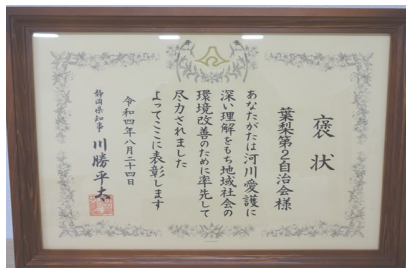 褒状
葉梨第2自治会様
あなたがたは河川愛護に
深い理解をもち地域社会の
環境改善のために率先して
尽力されました
よってここに表彰します
令和四年八月二十四日
静岡県知事 川勝平太